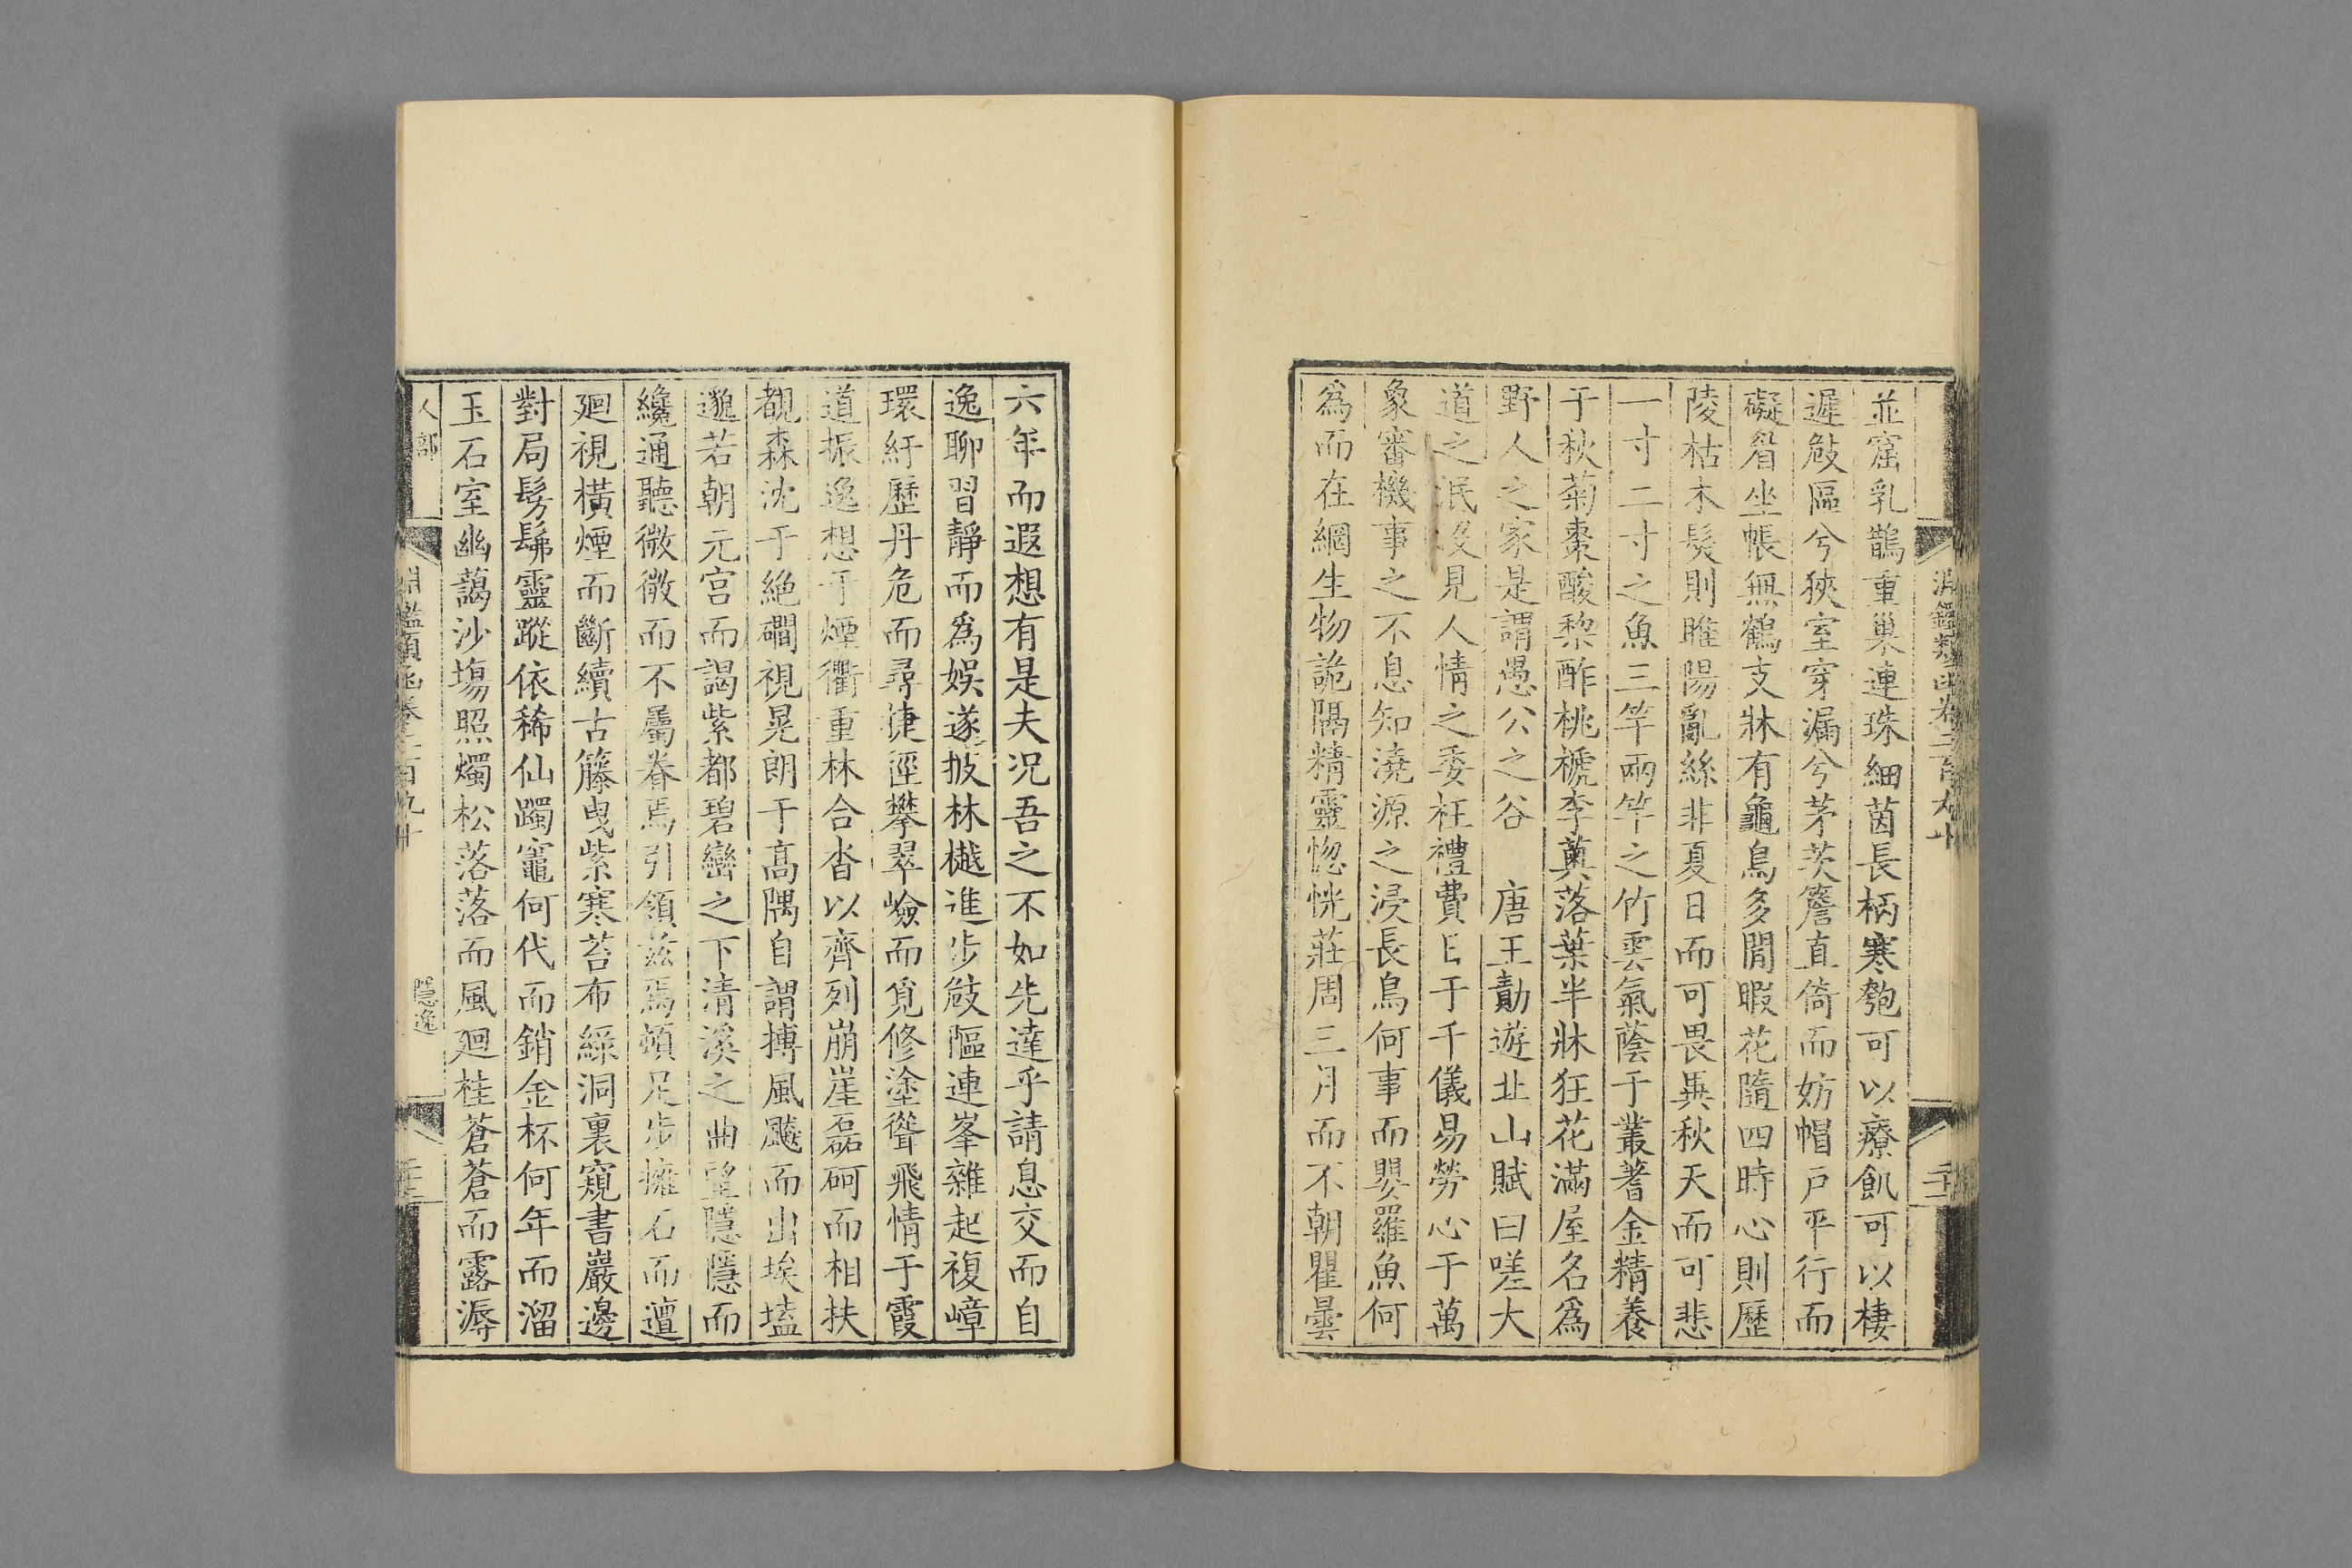 淵鑑類函卷二百九十
並窟乳鵲重巢連珠細茵長柄寒匏可以療飢可以棲
遲攲𨄅兮狹室穿漏兮茅茨簷直倚而妨帽戶平行而
礙眉坐帳無鶴支牀有龜鳥多閒暇花隨四時心則歷
陵枯木髮則睢陽亂絲非夏日而可畏異秋天而可悲
一寸二寸之魚三竿兩竿之竹雲氣蔭于叢蓍金精養
于秋菊棗酸棃酢桃榹李薁落葉半牀狂花滿屋名爲
野人之家是謂愚公之谷　唐王勣遊北山賦曰嗟大
道之泯没見人情之委枉禮費日于千儀易勞心于萬
象審機事之不息知澆源之浸長鳥何事而嬰羅魚何
爲而在網生物詭隔精靈惚恍莊周三月而不朝瞿曇
六年而遐想有是夫況吾之不如先達乎請息交而自
逸聊習靜而爲娛遂披林樾進步攲嶇連峯雜起複嶂
環紆歷丹危而尋捷徑攀翠嶮而覓修塗聳飛情于霞
道振逸想于煙衢重林合沓以齊列崩崖磊砢而相扶
覩森沈于絶磵視晃朗于高隅自謂摶風颷而出埃壒
邈若朝元宮而謁紫都碧巒之下清溪之曲望隱隱而
纔通聽微微而不屬眷焉引領兹焉頓足步擁石而邅
廻視橫煙而斷續古籐曳紫寒苔布綠洞裏窺書巖邊
對局髣髴靈蹤依稀仙躅竈何代而銷金杯何年而溜
玉石室幽藹沙塲照燭松落落而風廻桂蒼蒼而露溽
人部
淵鑑類函卷二百九十
隱逸